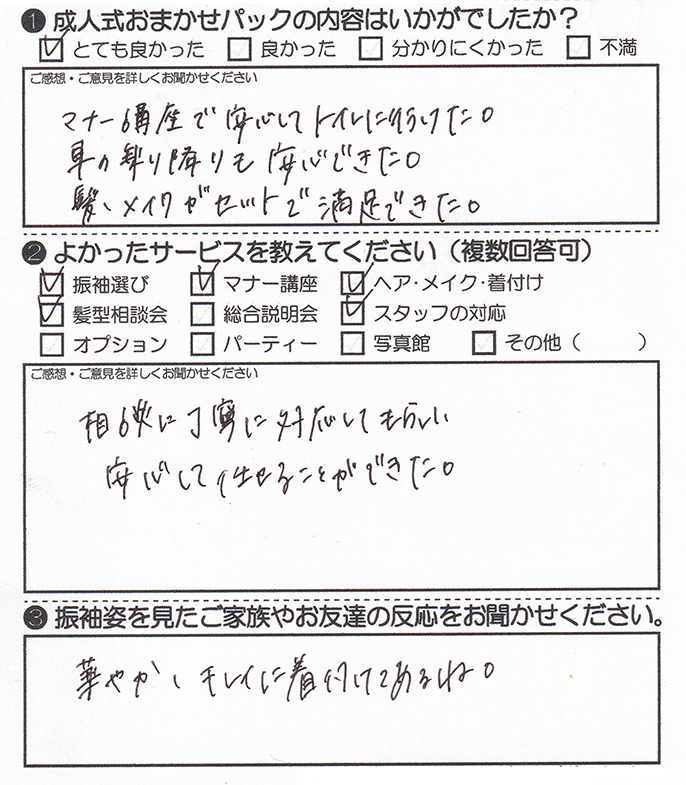 ❶ 成人式おまかせパックの内容はいかがでしたか？
☑ とても良かった □ 良かった □ 分かりにくかった □ 不満
ご感想・ご意見を詳しくお聞かせください
マナー講座で安心してトイレに行けた。
車の乗り降りも安心できた。
髪、メイクがセットで満足できた。
❷ よかったサービスを教えてください（複数回答可）
☑ 振袖選び ☑ マナー講座 ☑ ヘア・メイク・着付け
☑ 髪型相談会 □ 総合説明会 ☑ スタッフの対応
□ オプション □ パーティー □ 写真館 □ その他（　　）
ご感想・ご意見を詳しくお聞かせください
相談に丁寧に対応してもらい
安心して任せることができた。
❸ 振袖姿を見たご家族やお友達の反応をお聞かせください。
華やか、キレイに着付けてあるね。